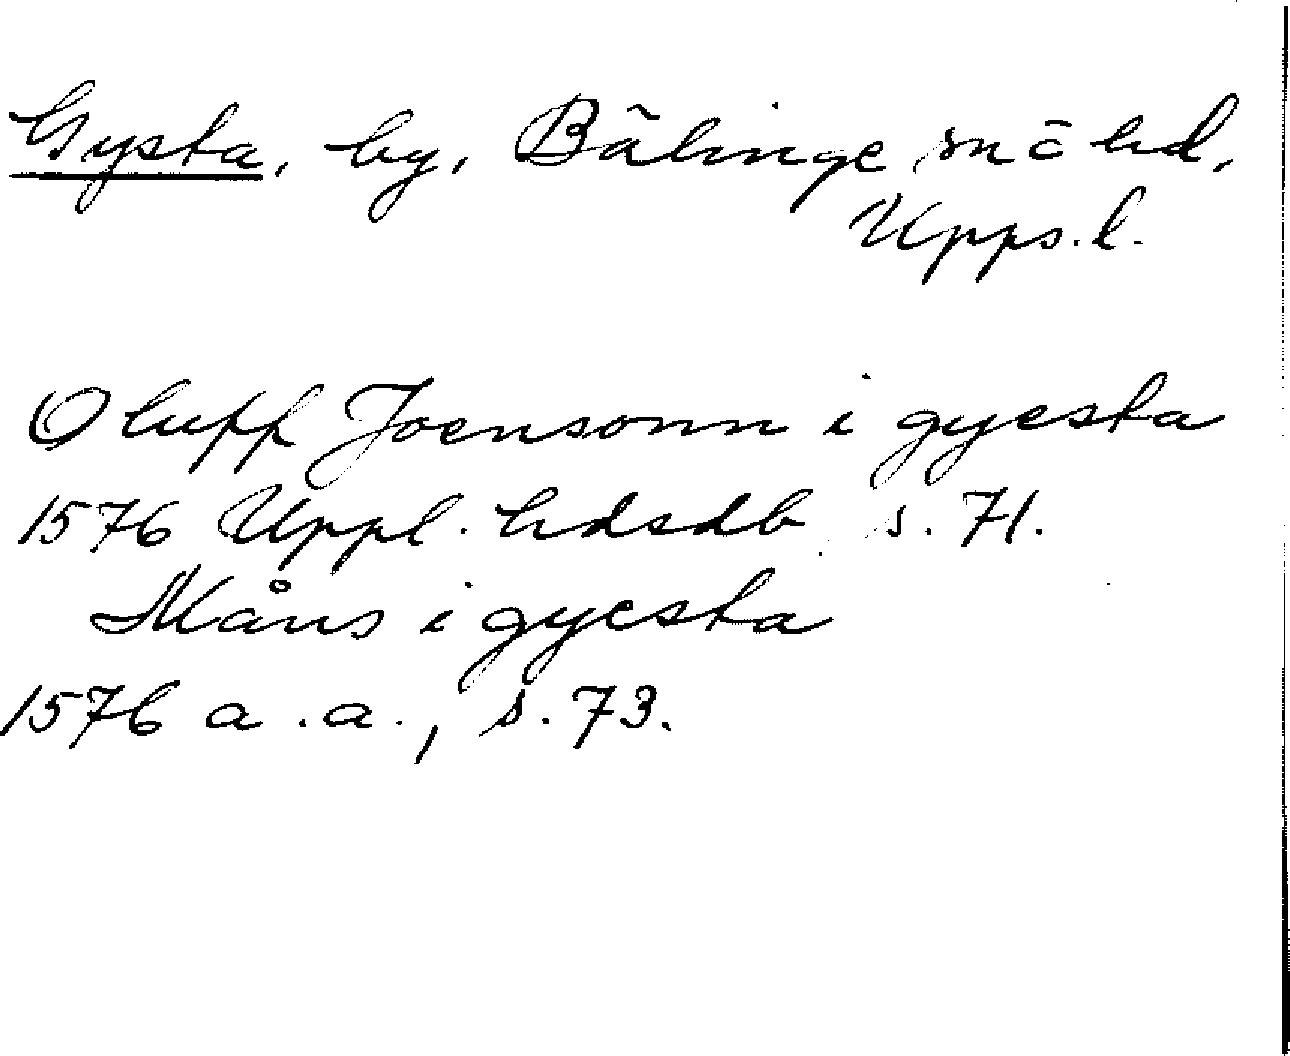 Gysta, by, Bälinge sn o hd,
Upps. l.
Oluff Joensonn i gyesta
1576 Uppl. hdsdb s. 71.
Måns i gyesta
1576 a.a., s. 73.